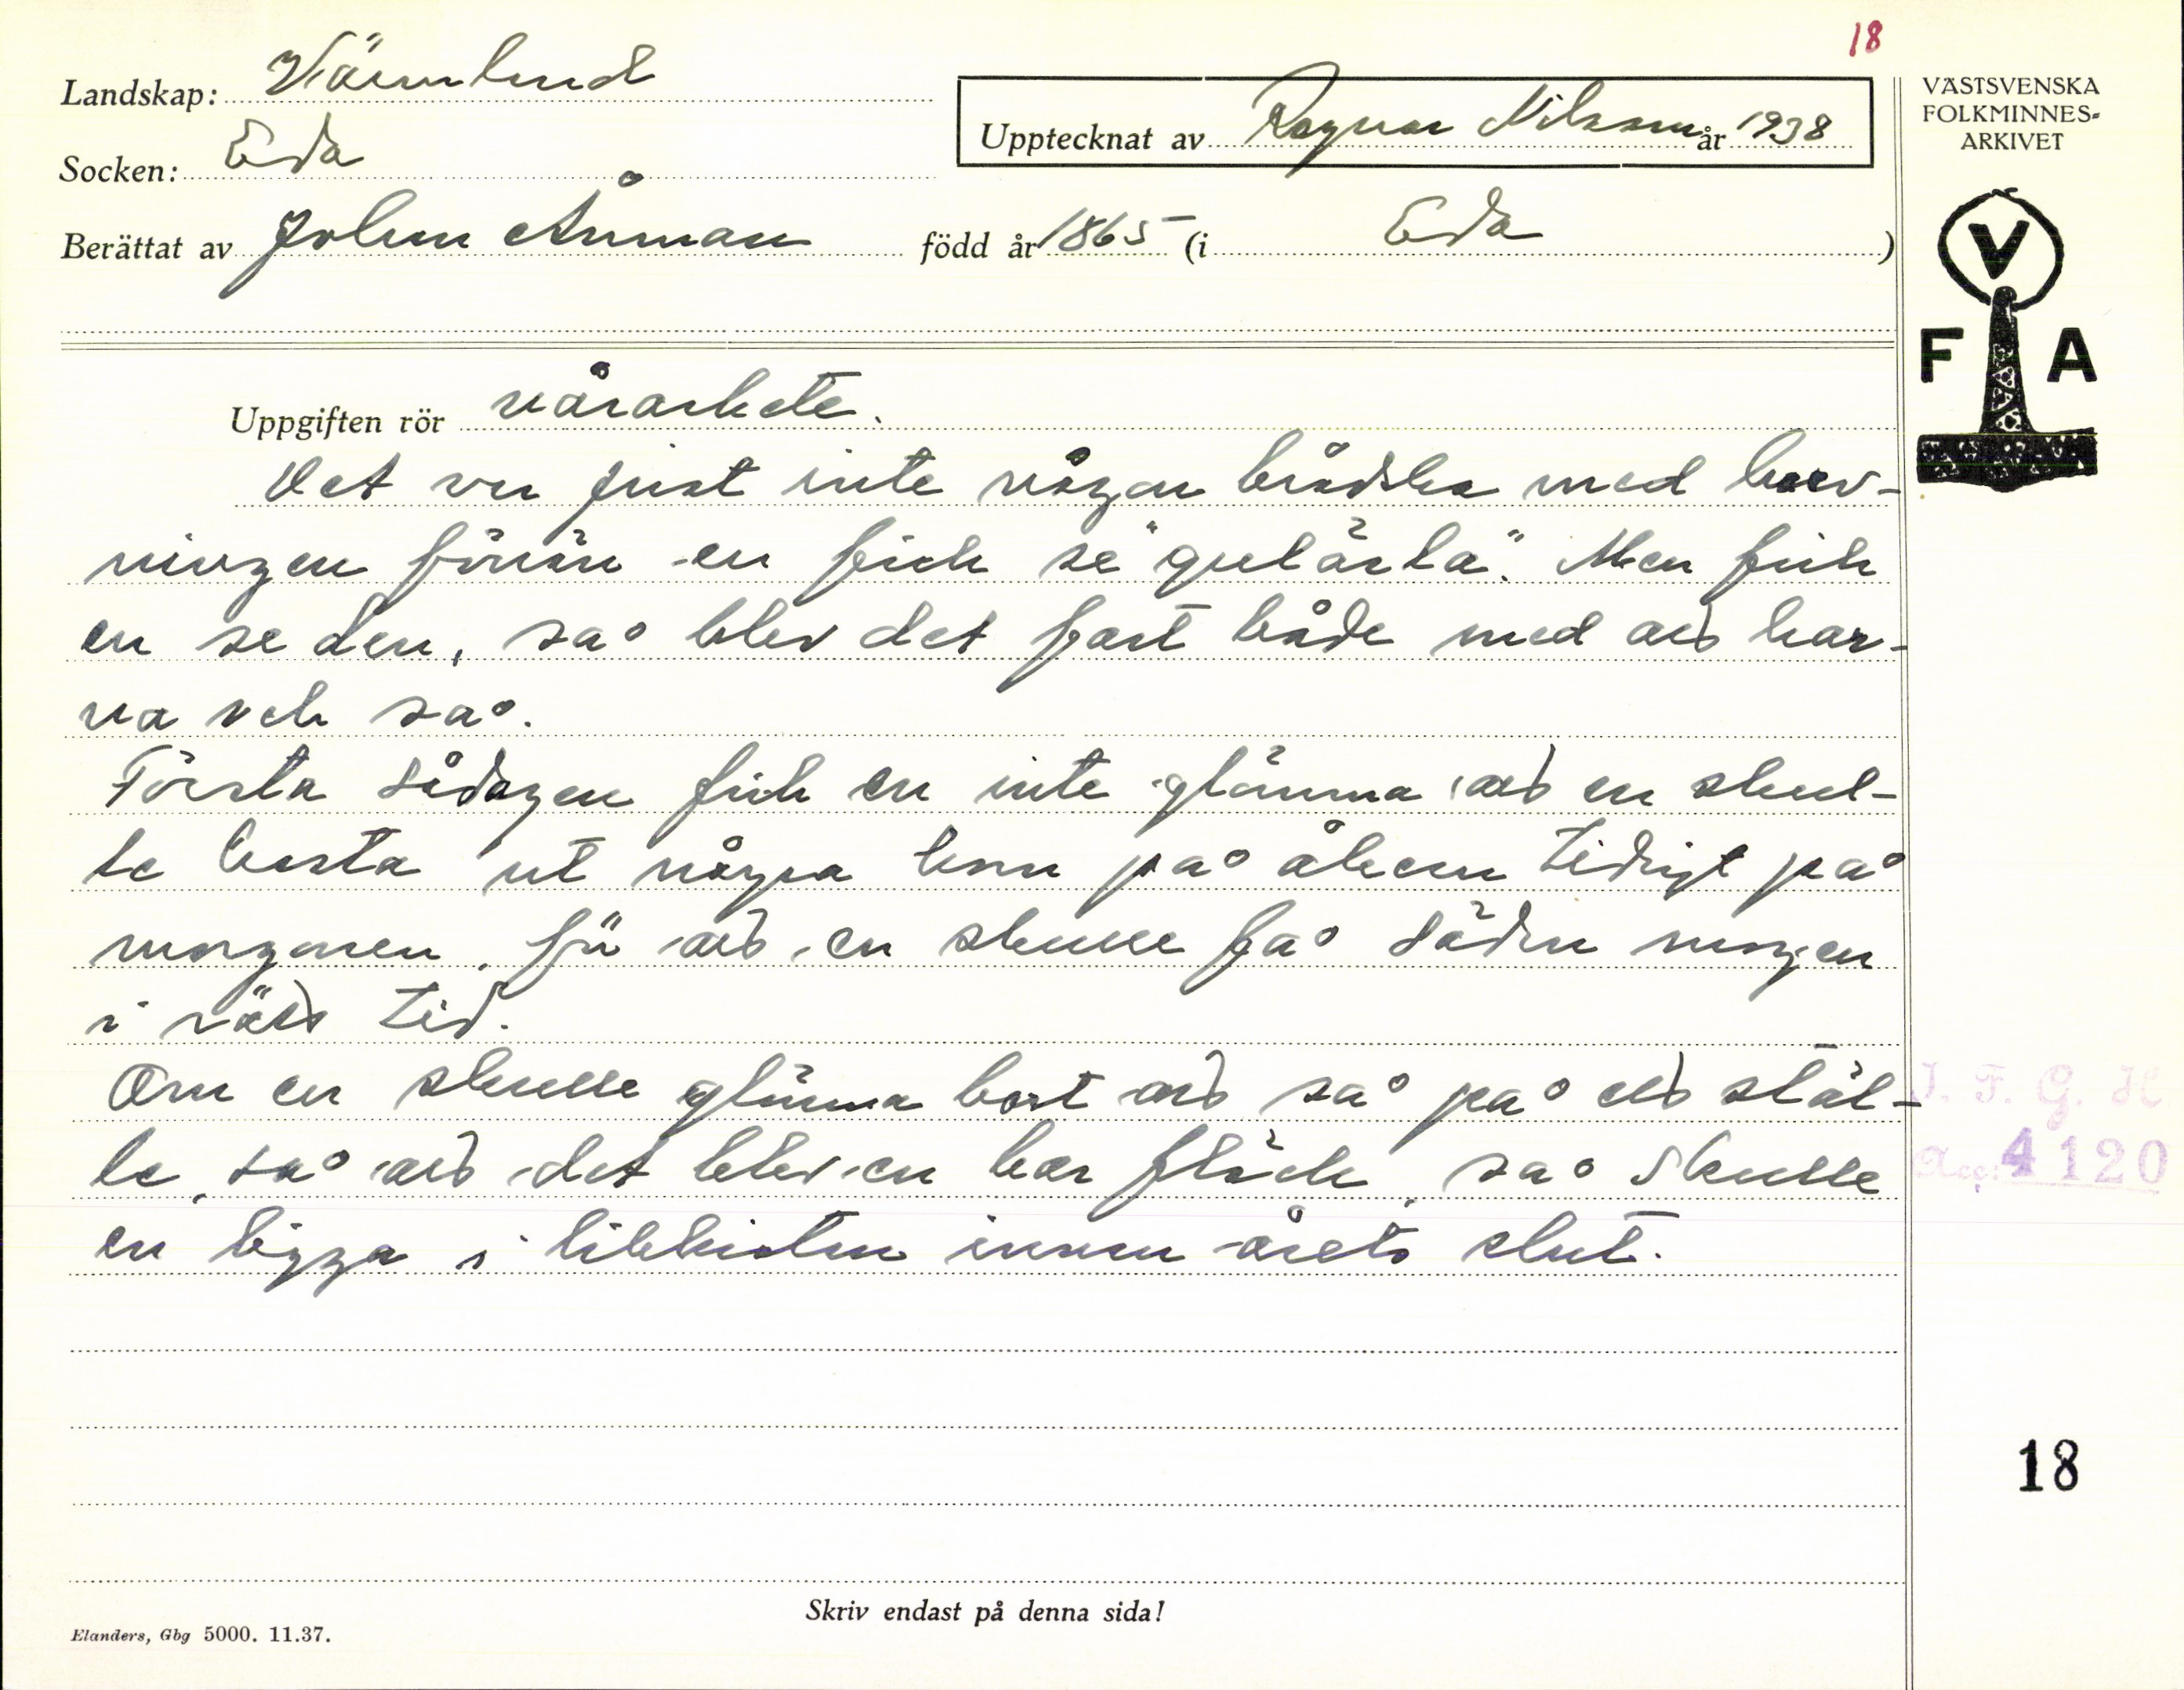 18
Landskap: Värmland
Socken: Eda
Upptecknat av Ragnar Nilsson år 1938
Berättat av Johan Ånman född år 1865 (i Eda)
VÄSTSVENSKA
FOLKMINNES-
ARKIVET
V
F A
Uppgiften rör vårarbete.
Det var just inte någon brådska med harv-
ningen förrän en fick se "gulärla". Men fick
en se den, så blev det fart både med att har-
va och så.
Första sådagen fick en inte glömma att en skul-
le kasta ut några korn på åkern tidigt på
morgonen, för att en skulle få säden mogen
i rätt tid.
Om en skulle glömma bort att så på ett stäl-
le, så att det blev en bar fläck, så skulle
en ligga i likkistan innan årets slut.
I. F. G. H
Acc: 4120
18
Skriv endast på denna sida!
Elanders, Gbg 5000. 11.37.